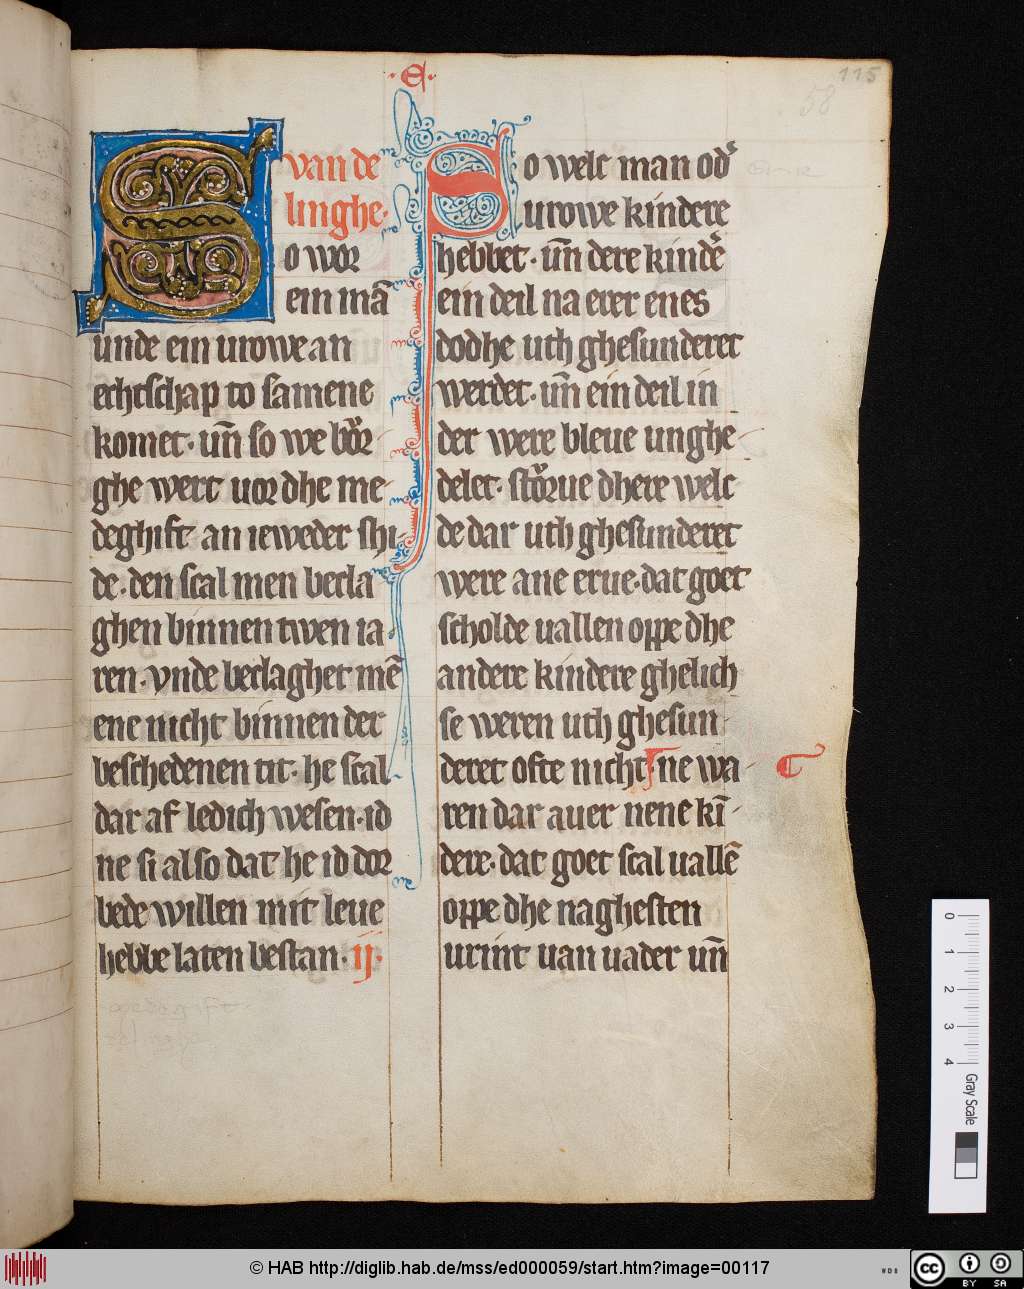 ·E·
115
58
van de
linghe·
So wor
ein mā
unde ein urowe an
echtschap to samene
komet· un̄ so we bor
ghe wert uor dhe me
deghift an ieweder shi
de· den scal men becla
ghen binnen twen ia
ren· vnde beclaghet mē
ene nicht binnen der
beschedenen tit· he scal
dar af ledich wesen· id
ne si also dat he id dor
bede willen mit leue
hebbe laten bestan· ij·
So welc man od͛
urowe kindere
hebbet· un̄ dere kind͛e
ein deil na erer enes
dodhe uth ghesunderet
werdet· un̄ ein deil in
der were bleue unghe
delet· storue dhere welc
de dar uth ghesunderet
were ane erue· dat goet
scholde uallen oppe dhe
andere kindere ghelich
se weren uth ghesun
deret ofte nicht· ne wa
ren dar auer nene kī
dere· dat goet scal uallē
oppe dhe naghesten
urint uan uader un̄
0 1 2 3 4 Gray Scale
© HAB http://diglib.hab.de/mss/ed000059/start.htm?image=00117
WDB
cc BY SA